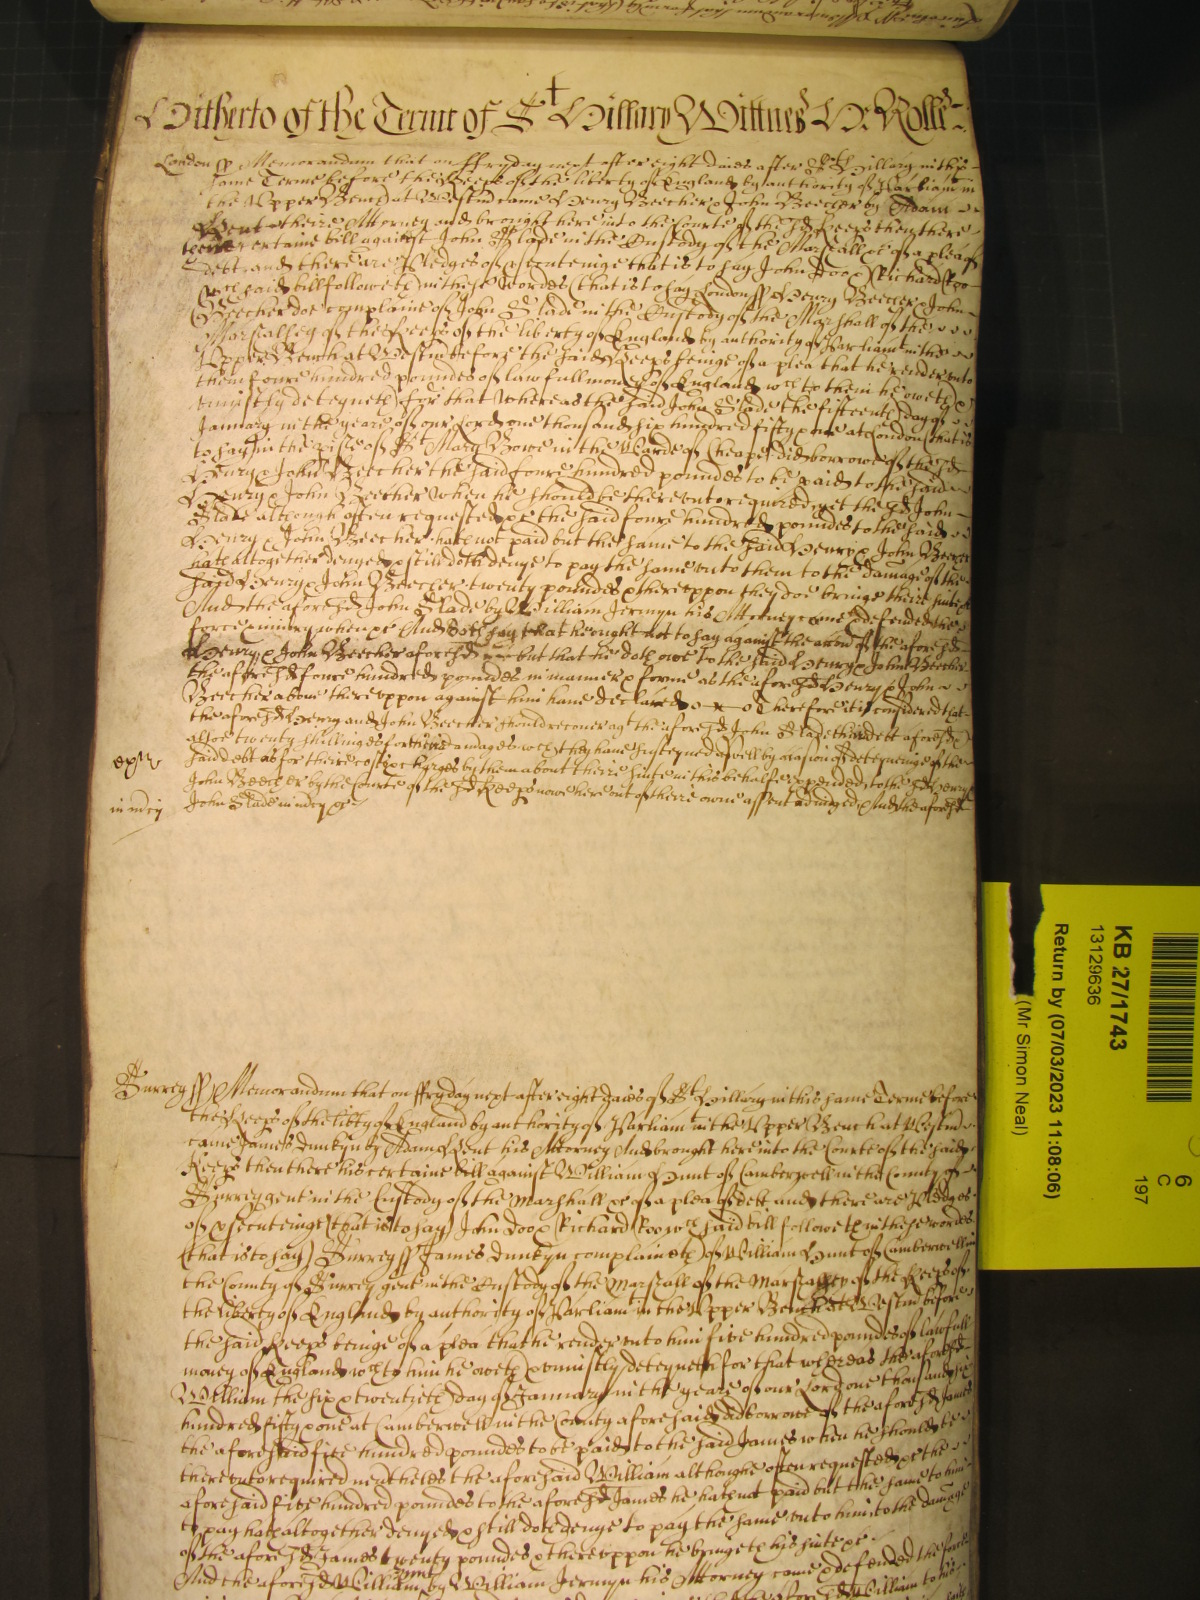 Hitherto of the Terme of St Hillary Wittnes H: Rolle
London ss Memorandum that on ffryday next after eight daies after St Hillary in this
same Terme before the Keeps of the liberty of England by authority of Parliamt in
the Upper Bench at Westm came Henry Beecher & John Beecher by Adam
Lent theire Attorney and brought here into the Courte of the sd Keeps then there
theire certaine bill against John Slade in the Custody of the Marshall &c of a plea of
debt and there are Pledges of psecuteinge that is to say John Doo & Richard Roo
wch said bill followeth in these wordes (that is to say) London ss Henry Beecher & John
Beecher doe complaine of John Slade in the Custody of the Marshall of the
Marshallsey of the Keeps of the liberty of England by authority of Parliamt in the
Upper Bench at Westm before the said Keeps beinge of a plea that he render unto
them foure hundred poundes of lawfull money of England wch to them he oweth &
uniustly deteyneth for that whereas the said John Slade the fifteenth day of
January in the yeare of our Lord one thousand six hundred fifty & one at London (that is
to say) in the pishe of St Mary Bowe in the Warde of Cheape did borrowe of the sd
Henry & John Beecher the said foure hundred poundes to be paid to the said
Henry & John Beecher when he should be thereunto required yet the sd John
Slade although often requested &c the said foure hundred poundes to the said
Henry & John Beecher hath not paid but the same to the said Henry & John Beecher
hath altogether denyed & still doth denye to pay the same unto them to the damage of the
said Henry & John Beecher twenty poundes & thereuppon they doe bringe theire suite &c
And the aforesd John Slade by William Jermyn his Attorney came & defended the
force & iniury when &c And doth say that he ought not to say against the accon of the aforesd
Henry & John Beecher aforesd but that he doth owe to the said Henry & John Beecher
the aforesd foure hundred poundes in manner & forme as the aforesd Henry & John
Beecher above thereuppon against him have declared Therefore it is considered that
the aforesd Henry and John Beecher should recover agt the aforesd John Slade theire debt aforesd &
alsoe twenty shillinges for theire damages wch they have susteyned aswell by occasion of deteyneinge of the
exr
said debt as for theire costs & charges by them about theire suite in this behalfe expended to the sd Henry &
John Beecher by the Courte of the sd Keeps nowe here out of theire owne assent adiudged And the aforesd
in mcy
John Slade in mcy &c
Surrey ss Memorandum that on ffryday next after eight daies of St Hillary in this same Terme before
the Keeps of the libty of England by authority of Parliamt in the Upper Bench at Westm
came James Dunkyn by Adam Lent his Attorney And brought here into the Courte of the said
Keeps then there his certaine bill against William Hunt of Camberwell in the County of
Surrey gent in the Custody of the Marshall &c of a plea of debt and there are Pledges
of psecuteinge (that is to say) John Doo & Richard Roo wch said bill followeth in these wordes
(that is to say) Surrey ss James Dunkyn complaineth of William Hunt of Camberwell in
the County of Surrey gent in the Custody of the Marshall of the Marshallsey of the Keeps of
the liberty of England by authority of Parliamt in the Upper Bench at Westm before
the said Keeps beinge of a plea that he render unto him five hundred poundes of lawfull
money of England wch to him he oweth & uniustly deteyneth for that whereas the aforesd
William the six & twentieth day of January in the yeare of our Lord one thousand six
hundred fifty & one at Camberwell in the County aforesaid did borrowe of the aforesd James
the aforesaid five hundred poundes to be paid to the said James when he should be
thereunto required neutheles the aforesaid William althoughe often requested &c the
aforesaid five hundred poundes to the aforesd James he hath not paid but the same to him
to pay hath altogether denyed & still doth denye to pay the same unto him to the damage
of the aforesd James twenty poundes & thereuppon he bringeth his suite &c
And the aforesd William Hunt by William Jermyn his Attorney came & defended the force
KB 27/1743
13129636
Return by (07/03/2023 11:08:06)
(Mr Simon Neal)
6
C
197